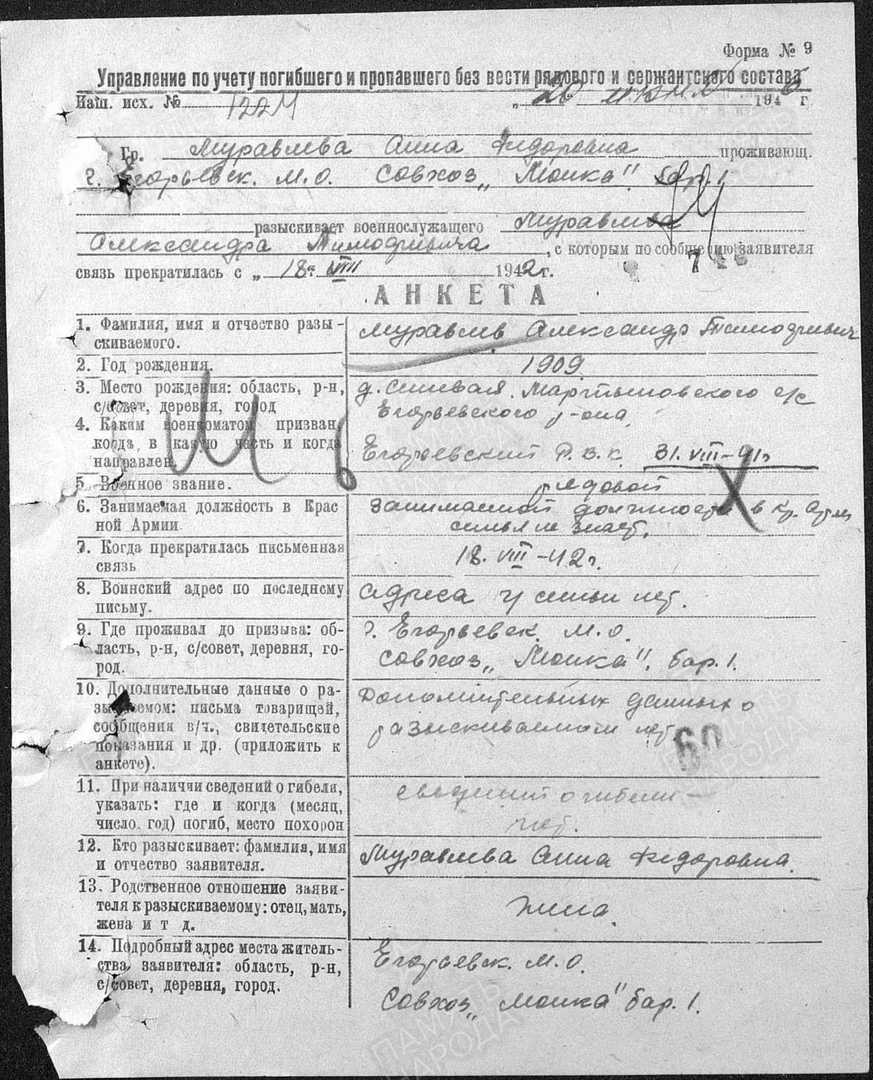 Форма № 9
Управление по учету погибшего и пропавшего без вести рядового и сержантского состава
Наш. исх. № 1224 „20 194 г
Гр. Муравлева Анна Федоровна проживающ.
г. Егорьевск. М.О. Совхоз „Моика" бар. 1
разыскивает военнослужащего Муравлева
Александра Тимофеевича, с которым по сообщению заявителя
связь прекратилась с „18. VIII 1942 г.
АНКЕТА
1. Фамилия, имя и отчество разы-
скиваемого.
Муравлев Александр Тимофеевич
2. Год рождения.
1909
3. Место рождения: область, р-н,
с/совет, деревня, город
д. Мартыновского с/с
Егорьевского р-она.
4. Каким военкоматом призван,
когда, в какую часть и когда
направлен
Егорьевский Р.В.К. 31. VIII-41г
5. Военное звание.
рядовой
6. Занимаемая должность в Крас
ной Армии
занимаемой должности в Кр. Арм
семья не знает.
7. Когда прекратилась письменная
связь
18. VIII-42г.
8. Воинский адрес по последнему
письму.
адреса у семьи нет.
9. Где проживал до призыва: об-
ласть, р-н, с/совет, деревня, го-
род.
г. Егорьевск. М.О.
Совхоз „Моика", бар. 1.
10. Дополнительные данные о ра-
зыскиваемом: письма товарищей,
сообщения в/ч., свидетельские
показания и др. (приложить к
анкете).
Дополнительных данных о
разыскиваемом нет
60
11. При наличии сведений о гибели,
указать: где и когда (месяц,
число, год) погиб, место похорон
сведений о гибели –
нет.
12. Кто разыскивает: фамилия, имя
и отчество заявителя.
Муравлева Анна Федоровна.
13. Родственное отношение заяви-
теля к разыскиваемому: отец, мать,
жена и т д.
жена.
14. Подробный адрес места житель-
ства заявителя: область, р-н,
с/совет, деревня, город.
Егорьевск. М.О.
Совхоз „Моика" бар. 1.
ПАМЯТЬ
НАРОДА